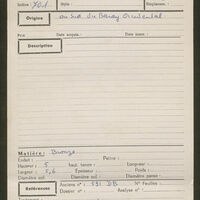 Indice : 401 Style :
Origine
au sud du Baray Occidental
Prix : Date acquis. : Date sortie :
Description
Matière : Bronze
Enduit : Patine :
Hauteur : 5 haut. tenon : Longueur :
Largeur : 5,6 Epaisseur : Poids :
Diamètre sup. : Diamètre inf. : Diamètre panse :
Références
Anciens nº : 591 DB Nº Feuilles :
Dossier : Analyse nº :